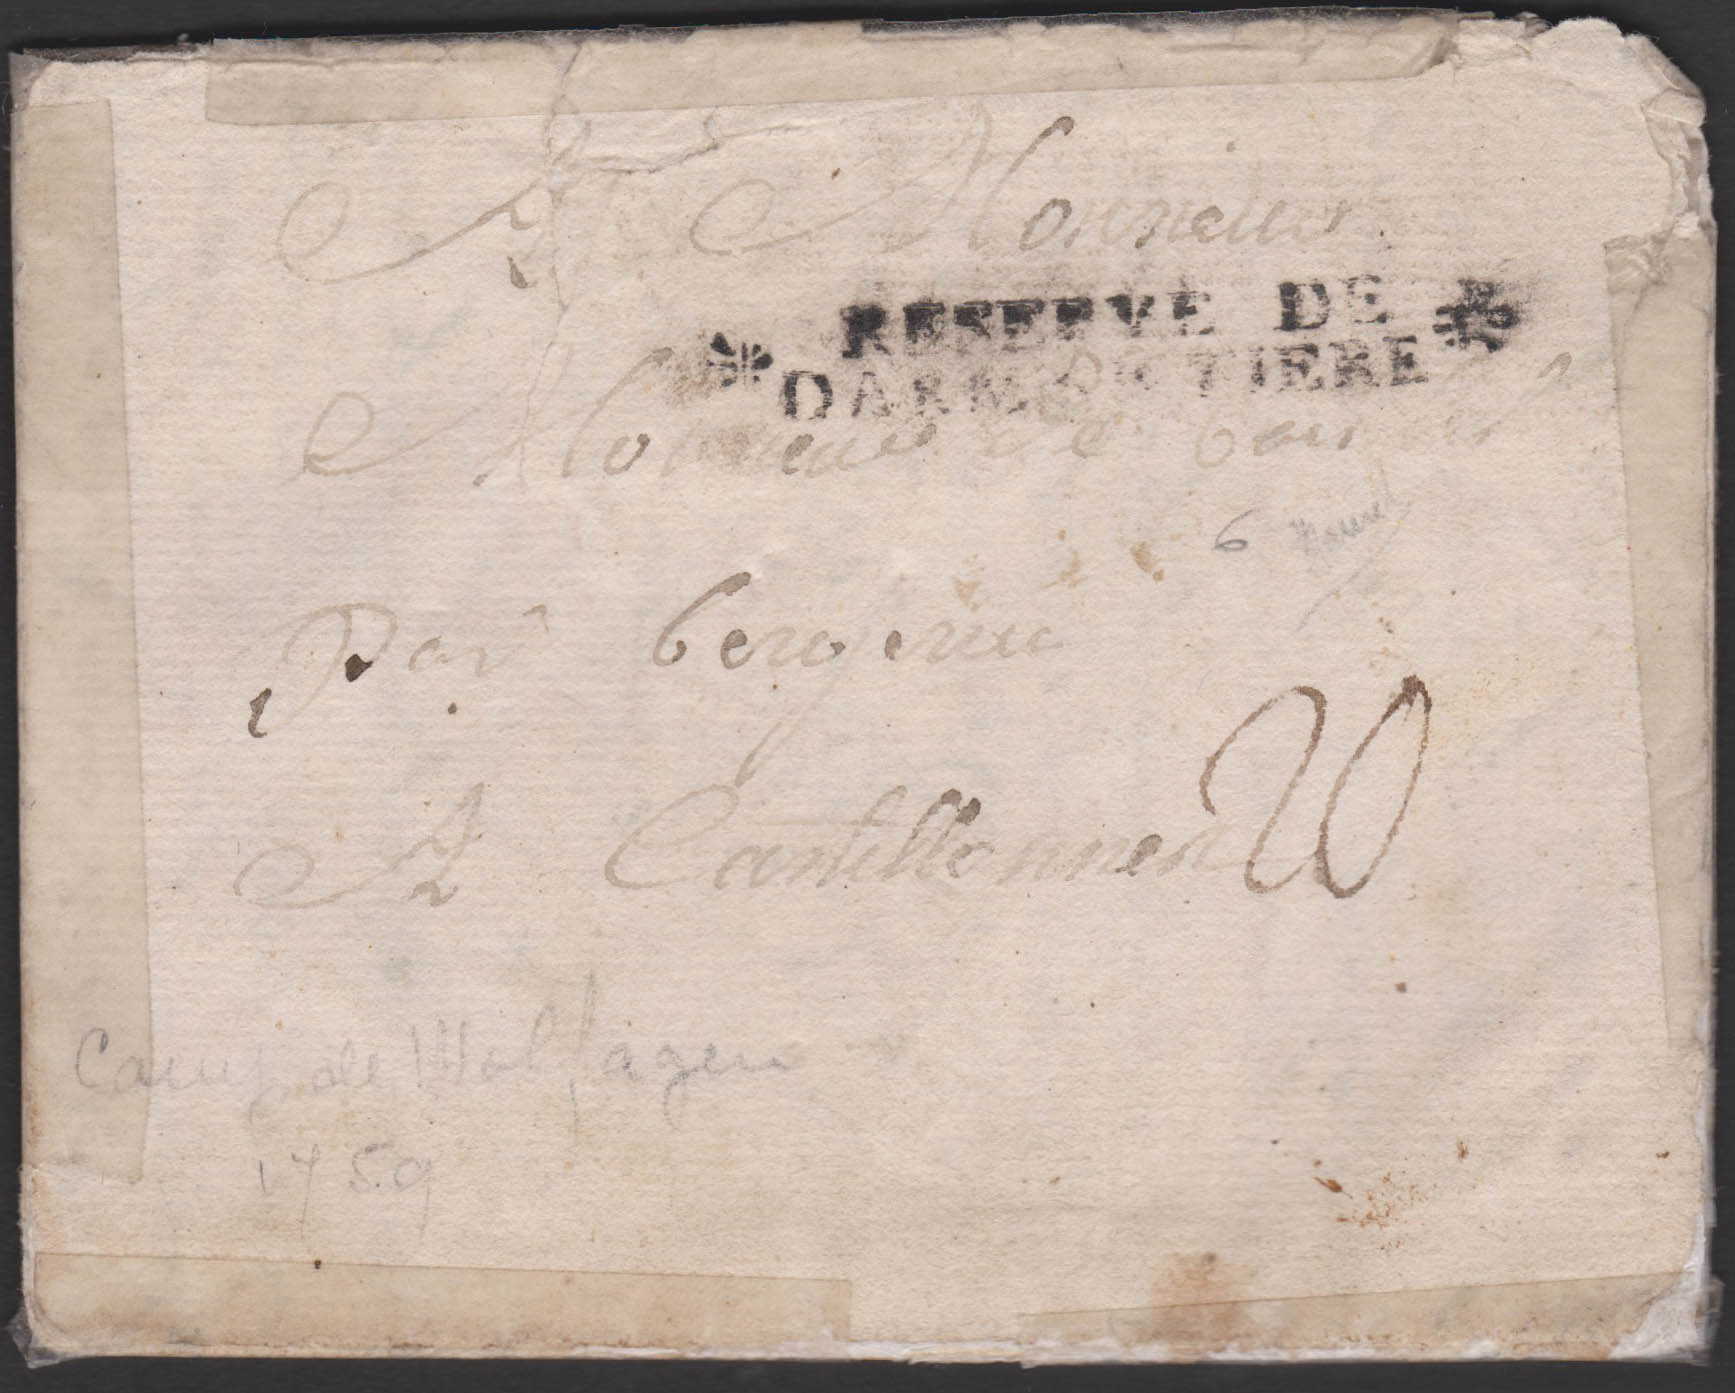 A Monsieur
RESERVE DE
DARMENTIERE
Monsieur de
6
Par bergerac
A Castillonnes
20
Camp de Wolfagen
1759